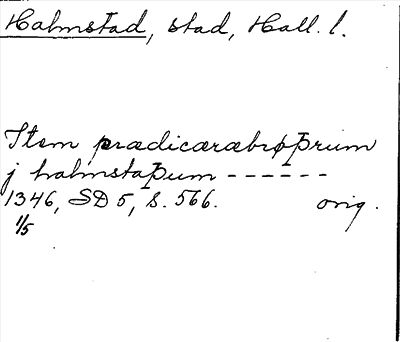 Halmstad, stad, Hall. l.
Item prædicæræbrøþrum
j halmstaþum ------
1346, SD 5, s. 566. orig.
1/5